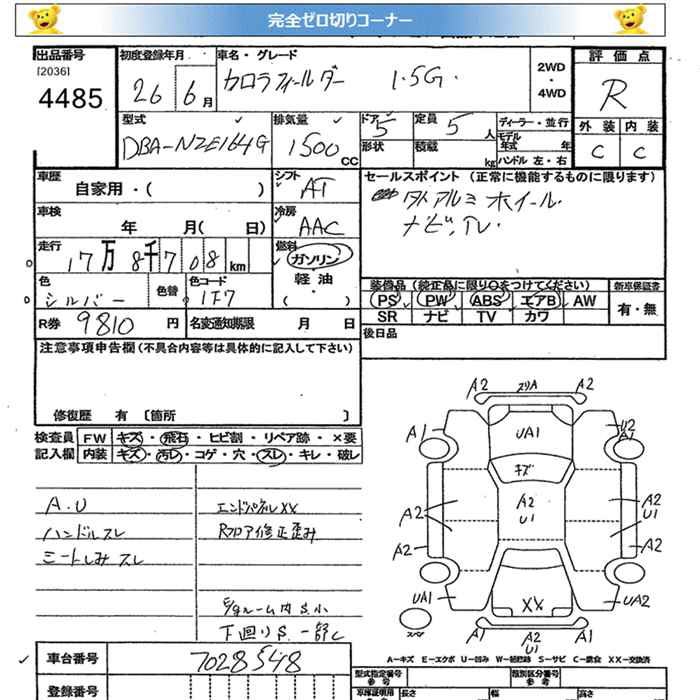 完全ゼロ切りコーナー
出品番号
[2036]
4485
初度登録年月
26 6月
車名・グレード
カロラフィールダー 1.5G
2WD
・
4WD
評価点
R
外装 内装
C C
型式
DBA-NZE164G
排気量
1500 CC
ドア
5
形状
定員
5 人
積載
kg
ディーラー・並行
モデル年式 年
ハンドル 左・右
車歴
自家用・( )
シフト
AT
車検
年 月( 日)
冷房
AAC
走行
17万8千708km
燃料
ガソリン
軽油
( )
色
シルバー
色替
色コード
1F7
R券 9810 円
名変通知期限 月 日
セールスポイント (正常に機能するものに限ります)
タトアルミホイール
ナビ,TV
装備品(純正品に限り○をつけてください)
PS PW ABS エアB AW
SR ナビ TV カワ
新車保証書
有・無
後日品
注意事項申告欄(不具合内容等は具体的に記入して下さい)
修復歴 有 〔箇所 〕
検査員記入欄
FW キズ・飛石・ヒビ割・リペア跡・×要
内装 キズ・汚レ・コゲ・穴・スレ・キレ・破レ
A.U
ハンドルスレ
ミートしみスレ
エンドパネルXX
Rフロア修正歪み
下廻りS.一部C
車台番号
7028548
登録番号
A2 スリA A2
A1 UA1 U2 A1
キズ
A2 A2 U1 A2 U1
A2 A2
UA1 XX UA2
スペア A1 A2 U1 A1
A-キズ E-エクボ U-凹み W-補修跡 S-サビ C-腐食 XX-交換済
型式指定番号
類別区分番号
長さ 幅 高さ